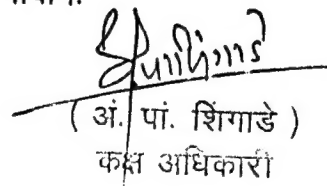 ( अं. पां. शिंगाडे )
कक्ष अधिकारी